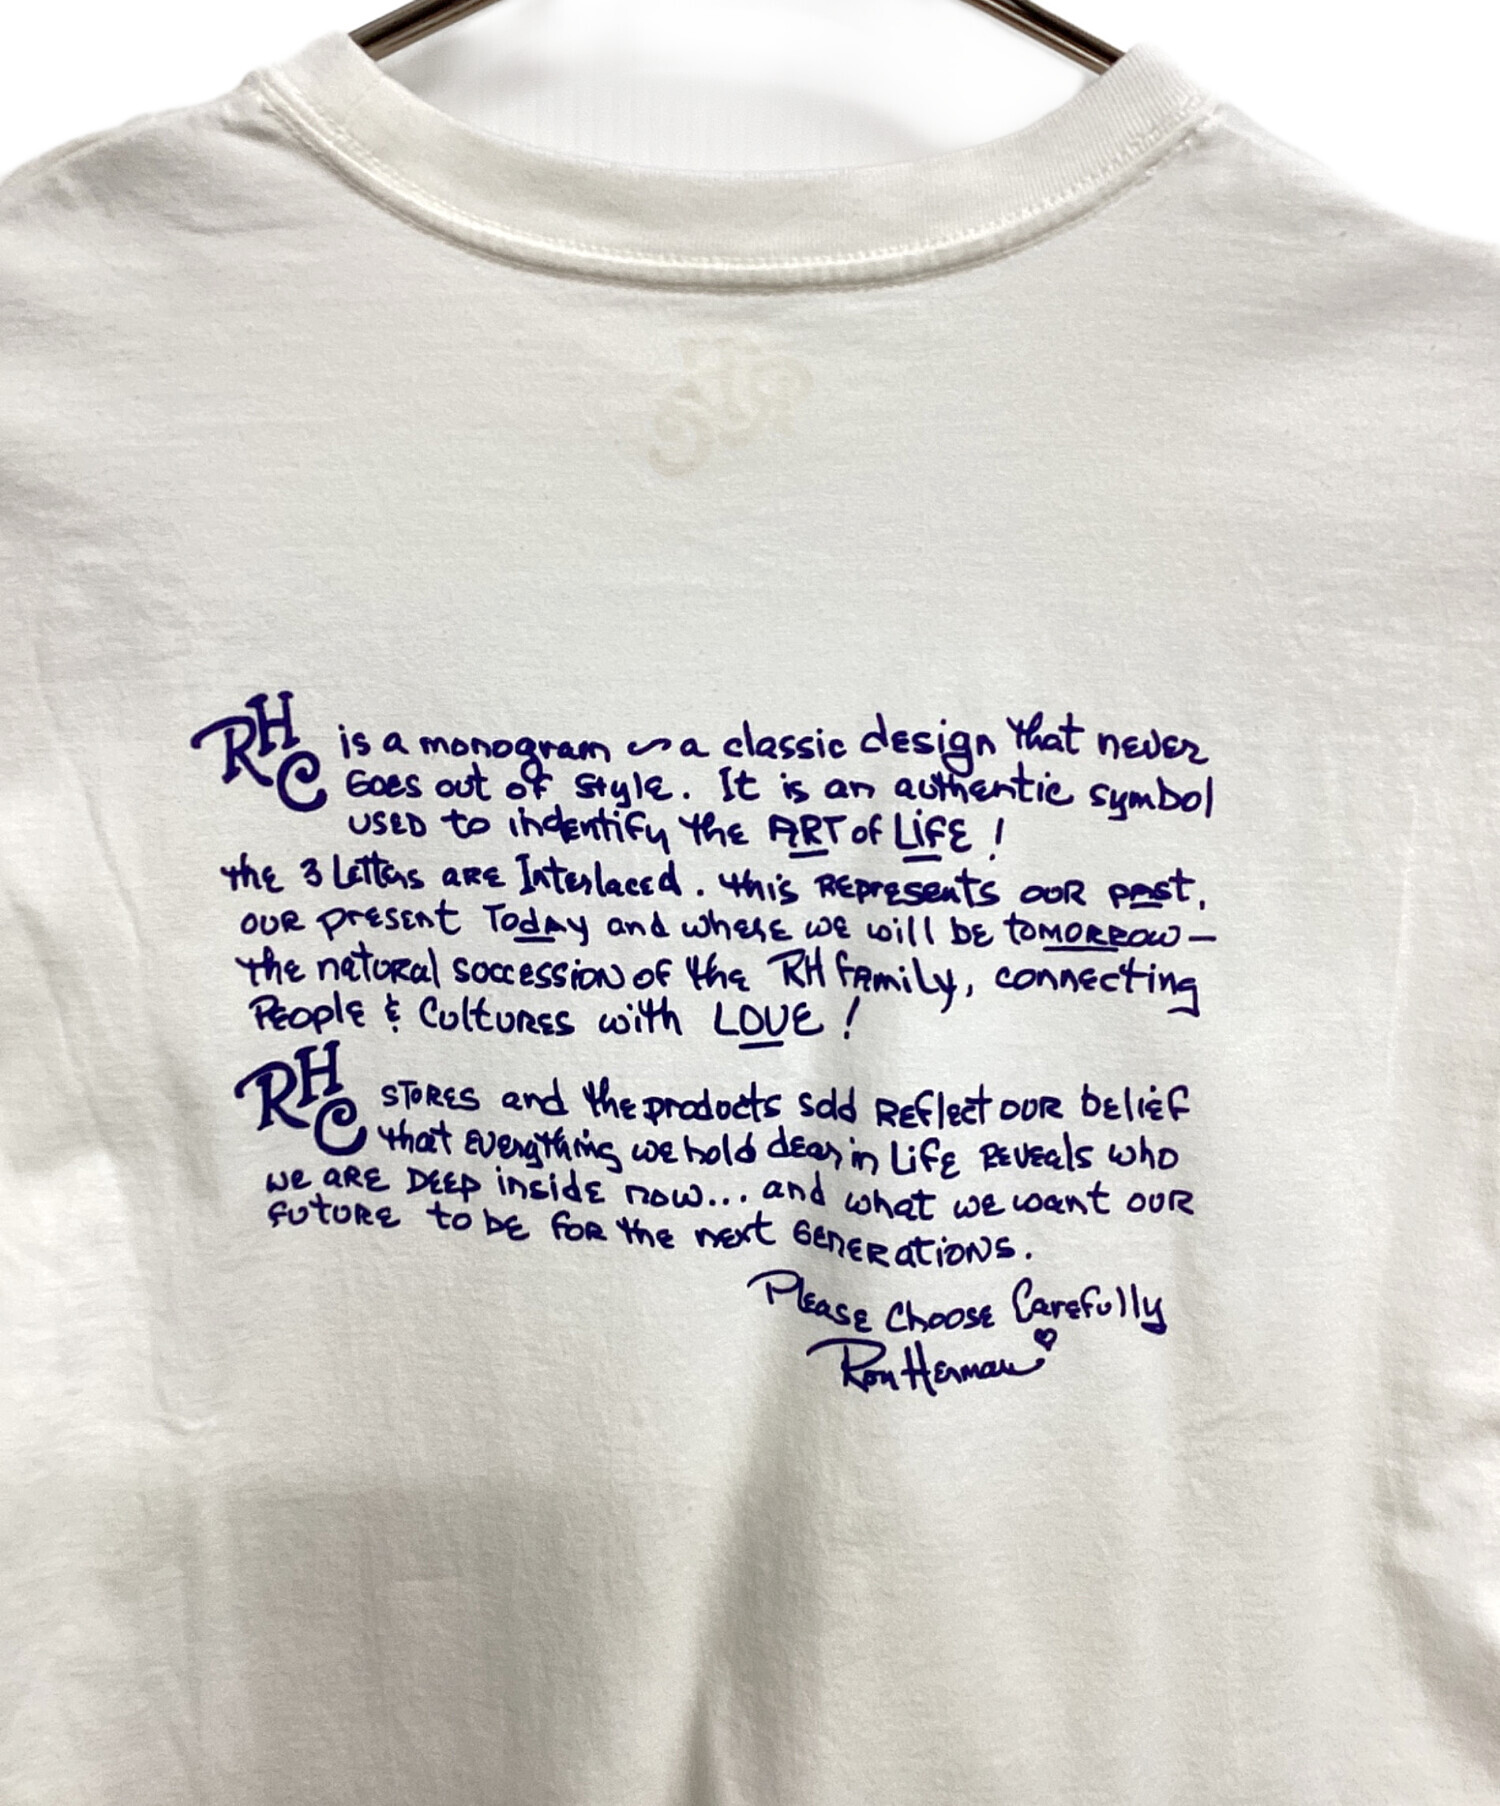 RHC is a monogram ~ a classic design that never
Goes out of style. It is an authentic symbol
USED to indentify the ART of LiFE!
the 3 Letters ARE Interlaced. this REpresents OUR past,
OUR present Today and where we will be toMORROW —
the natural soccession of the RH family, connecting
People & Cultures with LOVE!
RHC STORES and the products sold REflect OUR belief
that everything we hold dear in LifE REVEals who
WE ARE DEEP inside now... and what we want OUR
FUTURE to be for the next GENERATIONS.
Please Choose Carefully
Ron Herman ♡